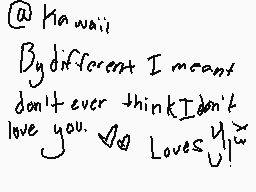 @ Kawaii
By different I meant
don't ever think I don't
love you. ♡♡ Loves Y!